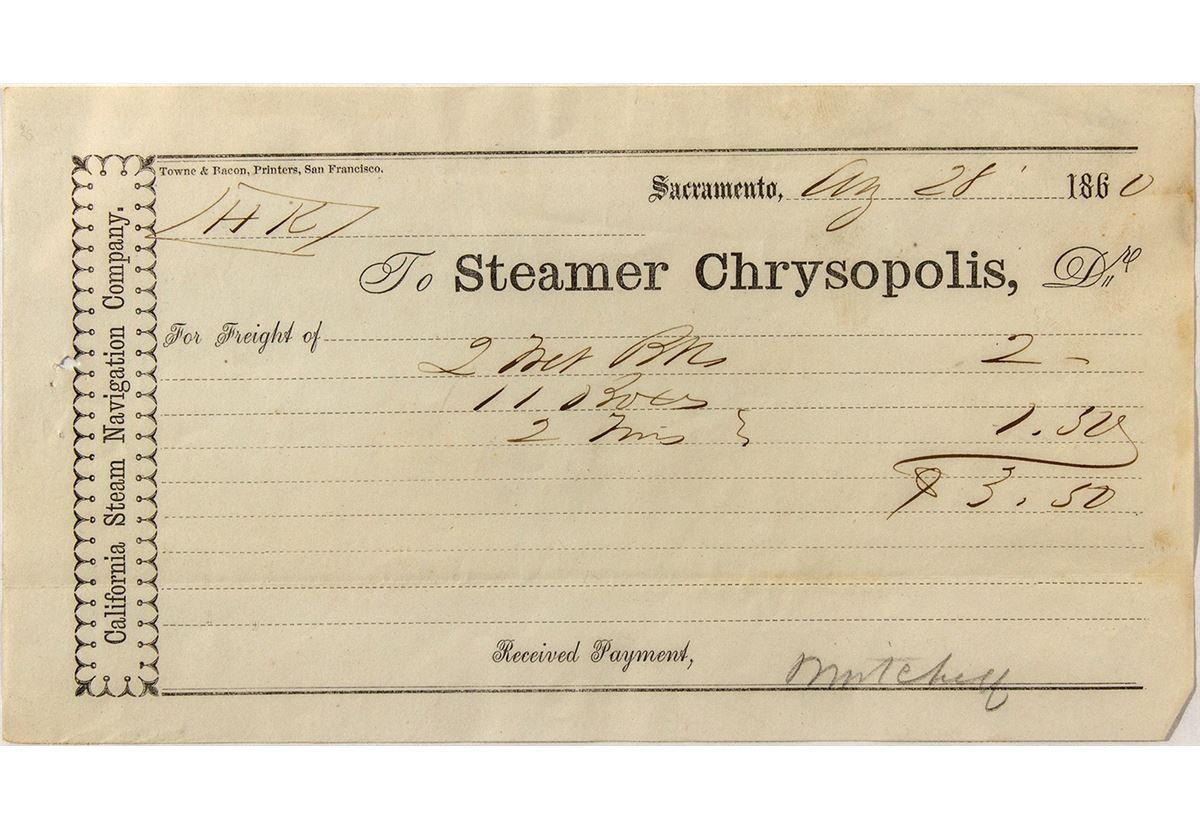 Towne & Bacon, Printers, San Francisco.
Sacramento, Aug 28 1860
HK
To Steamer Chrysopolis, Dr
For Freight of
2 Bbls 2 -
11 Boxes
2 1.50
$ 3.50
Received Payment,
Mitchell
California Steam Navigation Company.